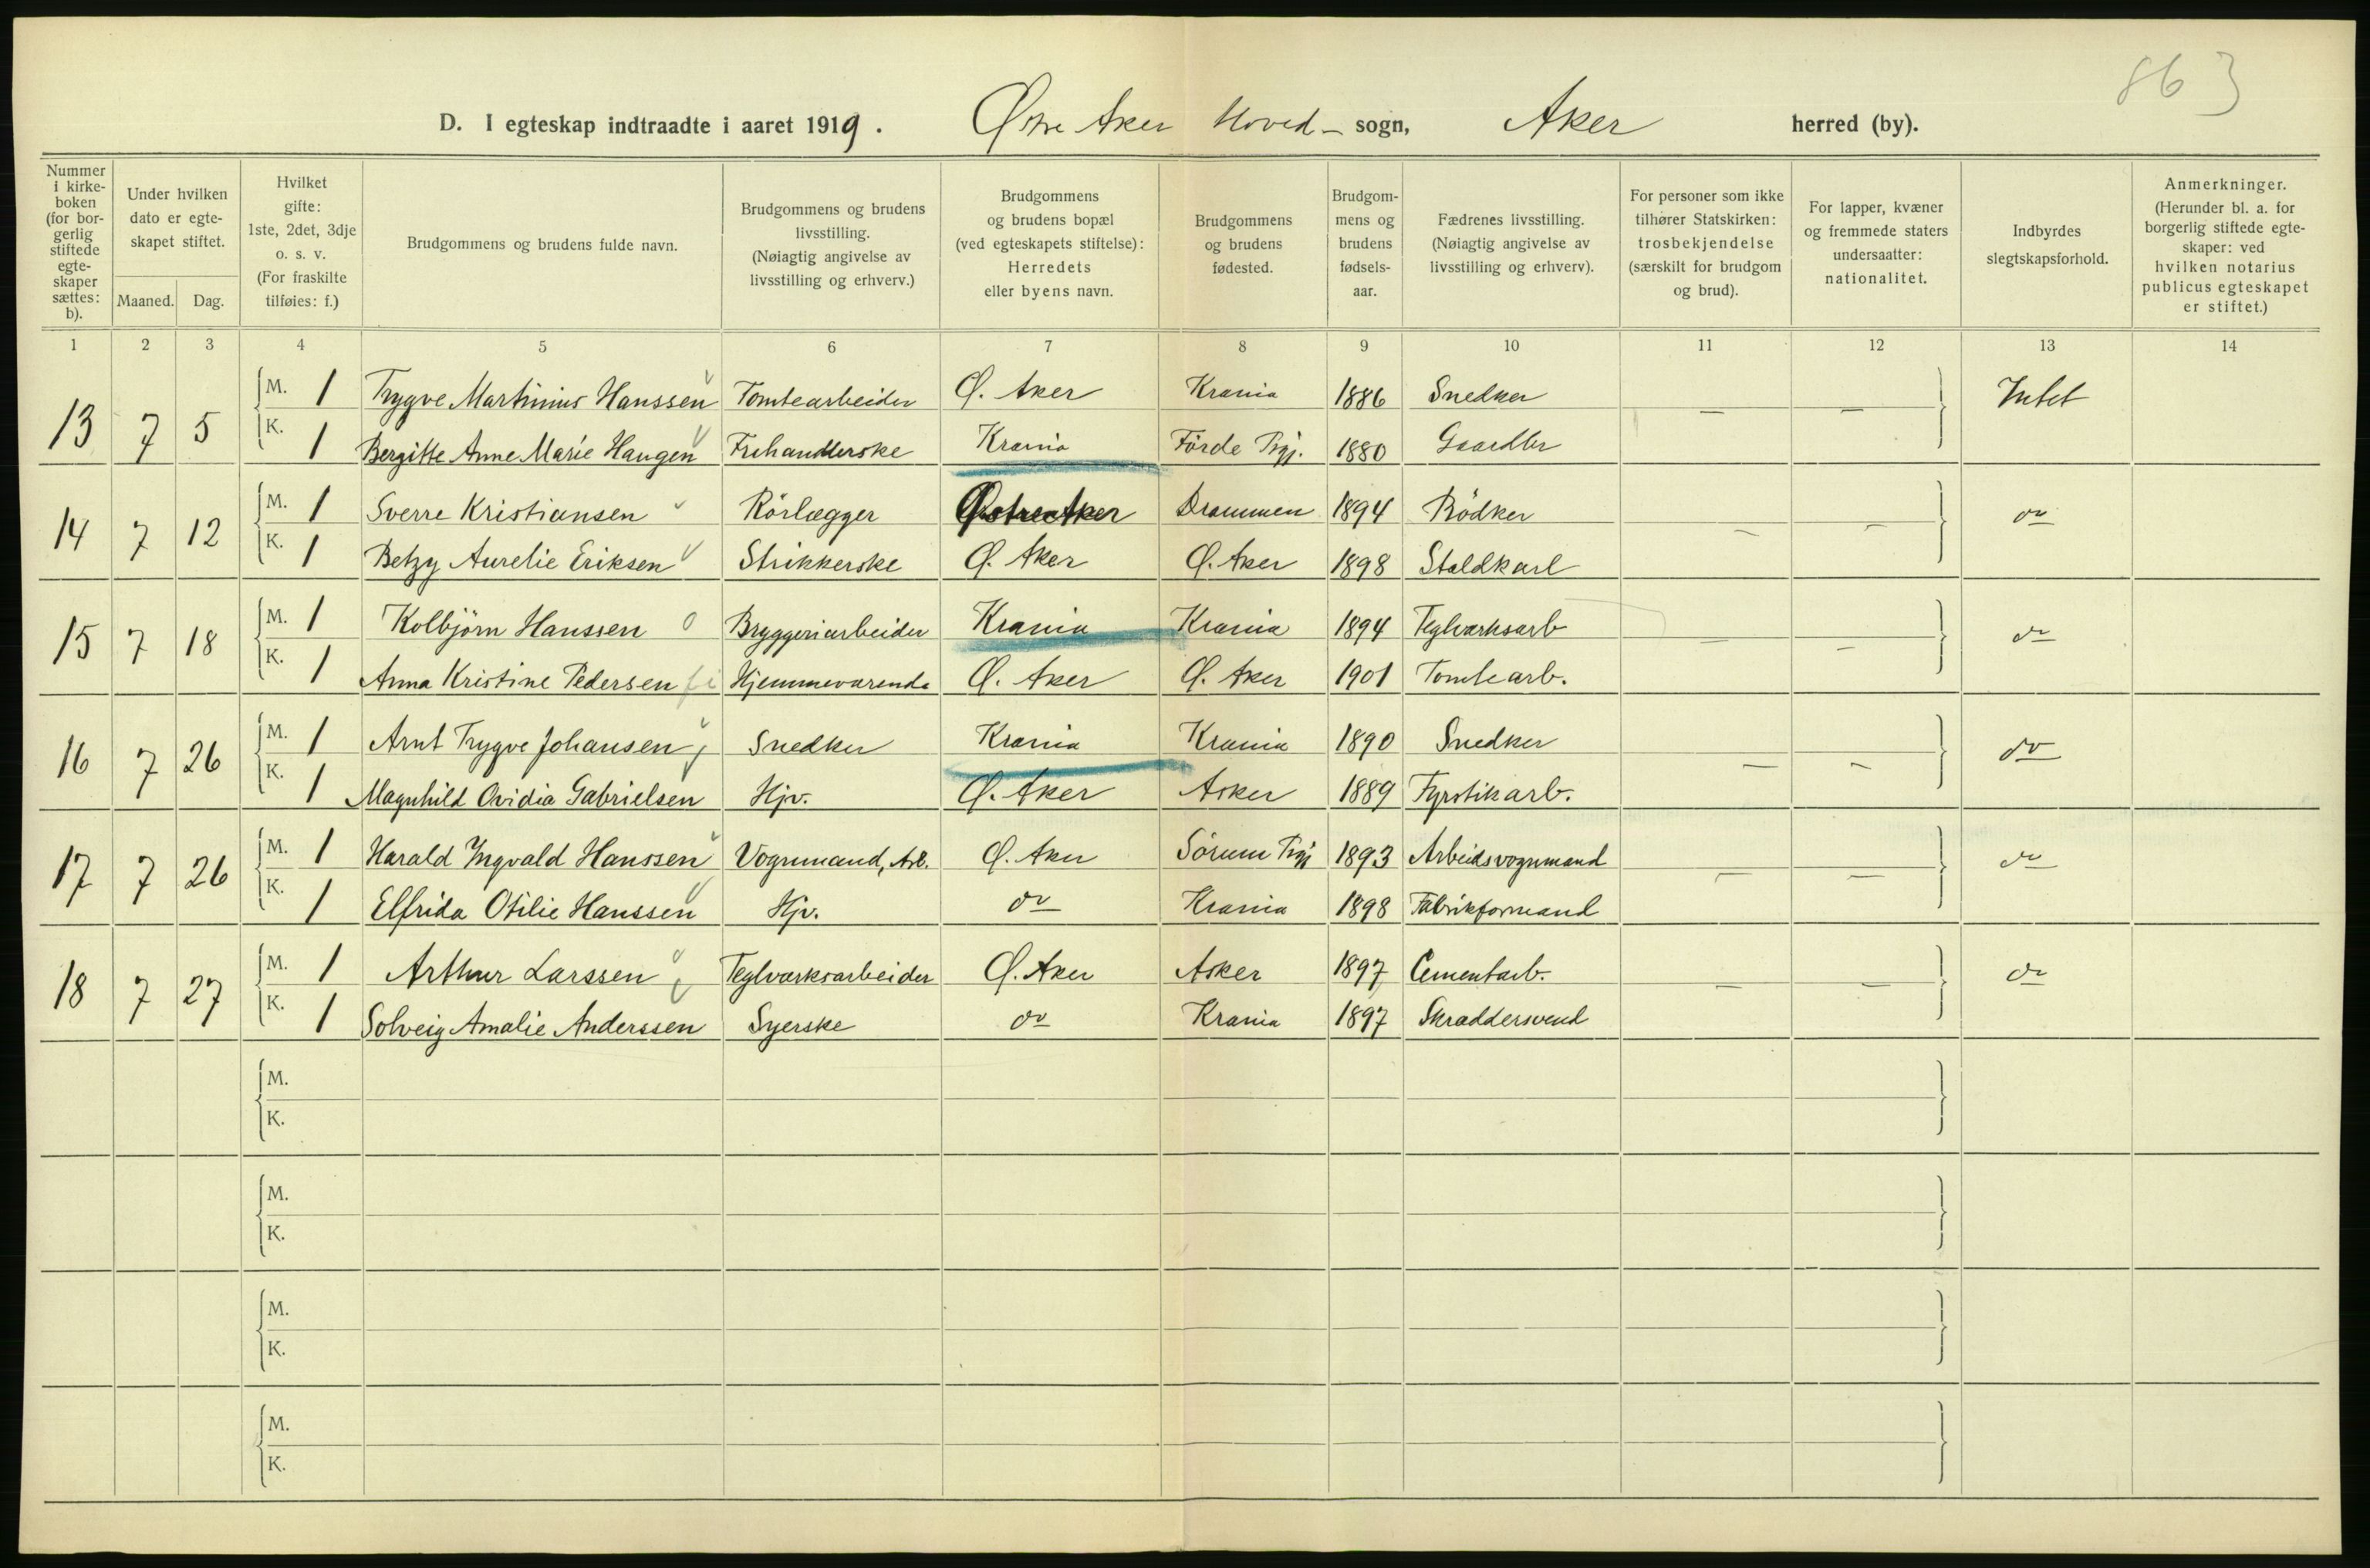 863
D. I egteskap indtraadte i aaret 1919. Østre Aker Hoved- sogn, Aker herred (by).
Nummer i kirke-boken (for bor-gerlig stiftede egte-skaper sættes: b).
Under hvilken dato er egte-skapet stiftet.
Maaned. Dag.
Hvilket gifte: 1ste, 2det, 3dje o. s. v. (For fraskilte tilføies: f.)
Brudgommens og brudens fulde navn.
Brudgommens og brudens livsstilling. (Nøiagtig angivelse av livsstilling og erhverv.)
Brudgommens og brudens bopæl (ved egteskapets stiftelse): Herredets eller byens navn.
Brudgommens og brudens fødested.
Brudgom-mens og brudens fødsels-aar.
Fædrenes livsstilling. (Nøiagtig angivelse av livsstilling og erhverv).
For personer som ikke tilhører Statskirken: trosbekjendelse (særskilt for brudgom og brud).
For lapper, kvæner og fremmede staters undersaatter: nationalitet.
Indbyrdes slegtskapsforhold.
Anmerkninger. (Herunder bl. a. for borgerlig stiftede egte-skaper: ved hvilken notarius publicus egteskapet er stiftet.)
1 2 3 4 5 6 7 8 9 10 11 12 13 14
13 7 5 M. 1 Trygve Martinius Hanssen Tomtearbeider Ø. Aker Krania 1886 Snedker — — Intet
K. 1 Bergitte Anne Marie Haugen Frihandlerske Krania Førde Prgj. 1880 Gaardbr
14 7 12 M. 1 Sverre Kristiansen Rörlægger Østre Aker Drammen 1894 Bödker — — do
K. 1 Betzy Aurelie Eriksen Strikkerske Ø. Aker Ø. Aker 1898 Staldkarl
15 7 18 M. 1 Kolbjörn Hanssen Bryggeriarbeider Krania Krania 1894 Teglverksarb — — do
K. 1 Anna Kristine Pedersen Hjemmeværende Ø. Aker Ø. Aker 1901 Tomtearb.
16 7 26 M. 1 Arnt Trygve Johansen Snedker Krania Krania 1890 Snedker — — do
K. 1 Magnhild Ovidia Gabrielsen Hjv. Ø. Aker Asker 1889 Fyrstikarb.
17 7 26 M. 1 Harald Ingvald Hanssen Vognmand, Arb. Ø. Aker Sörum Prgj 1893 Arbeidsvognmand — — do
K. 1 Elfrida Otilie Hanssen Hjv. do Krania 1898 Fabrikformand
18 7 27 M. 1 Arthur Larssen Teglværksarbeider Ø. Aker Asker 1897 Cementarb. — — do
K. 1 Solveig Amalie Anderssen Syerske do Krania 1897 Skræddersvend
M.
K.
M.
K.
M.
K.
M.
K.